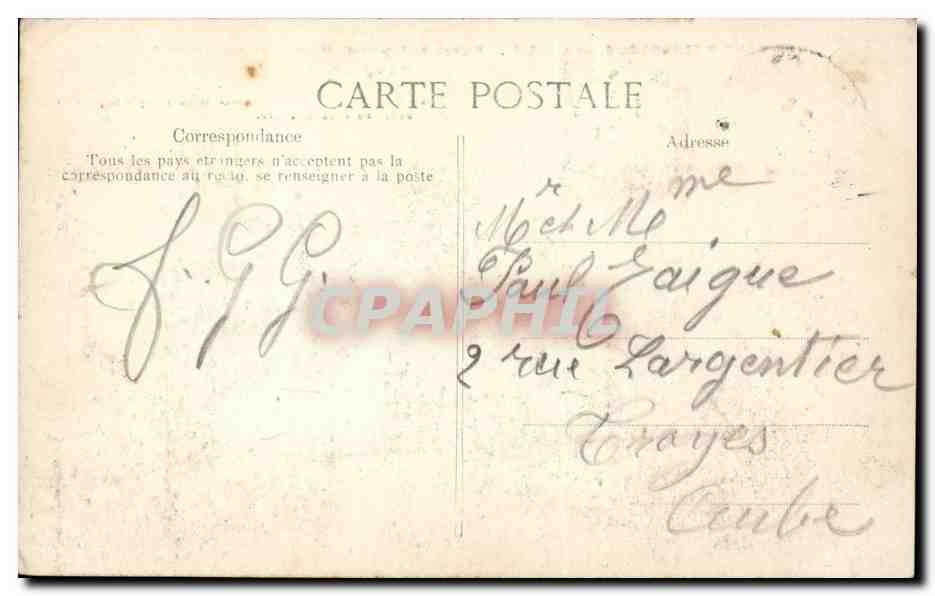 CARTE POSTALE
Correspondance
Tous les pays étrangers n'acceptent pas la
correspondance au recto, se renseigner à la poste
J. G G.
Adresse
Mr et Mme
Paul Gaigue
2 rue Largentier
Troyes
Aube
CPAPHIL